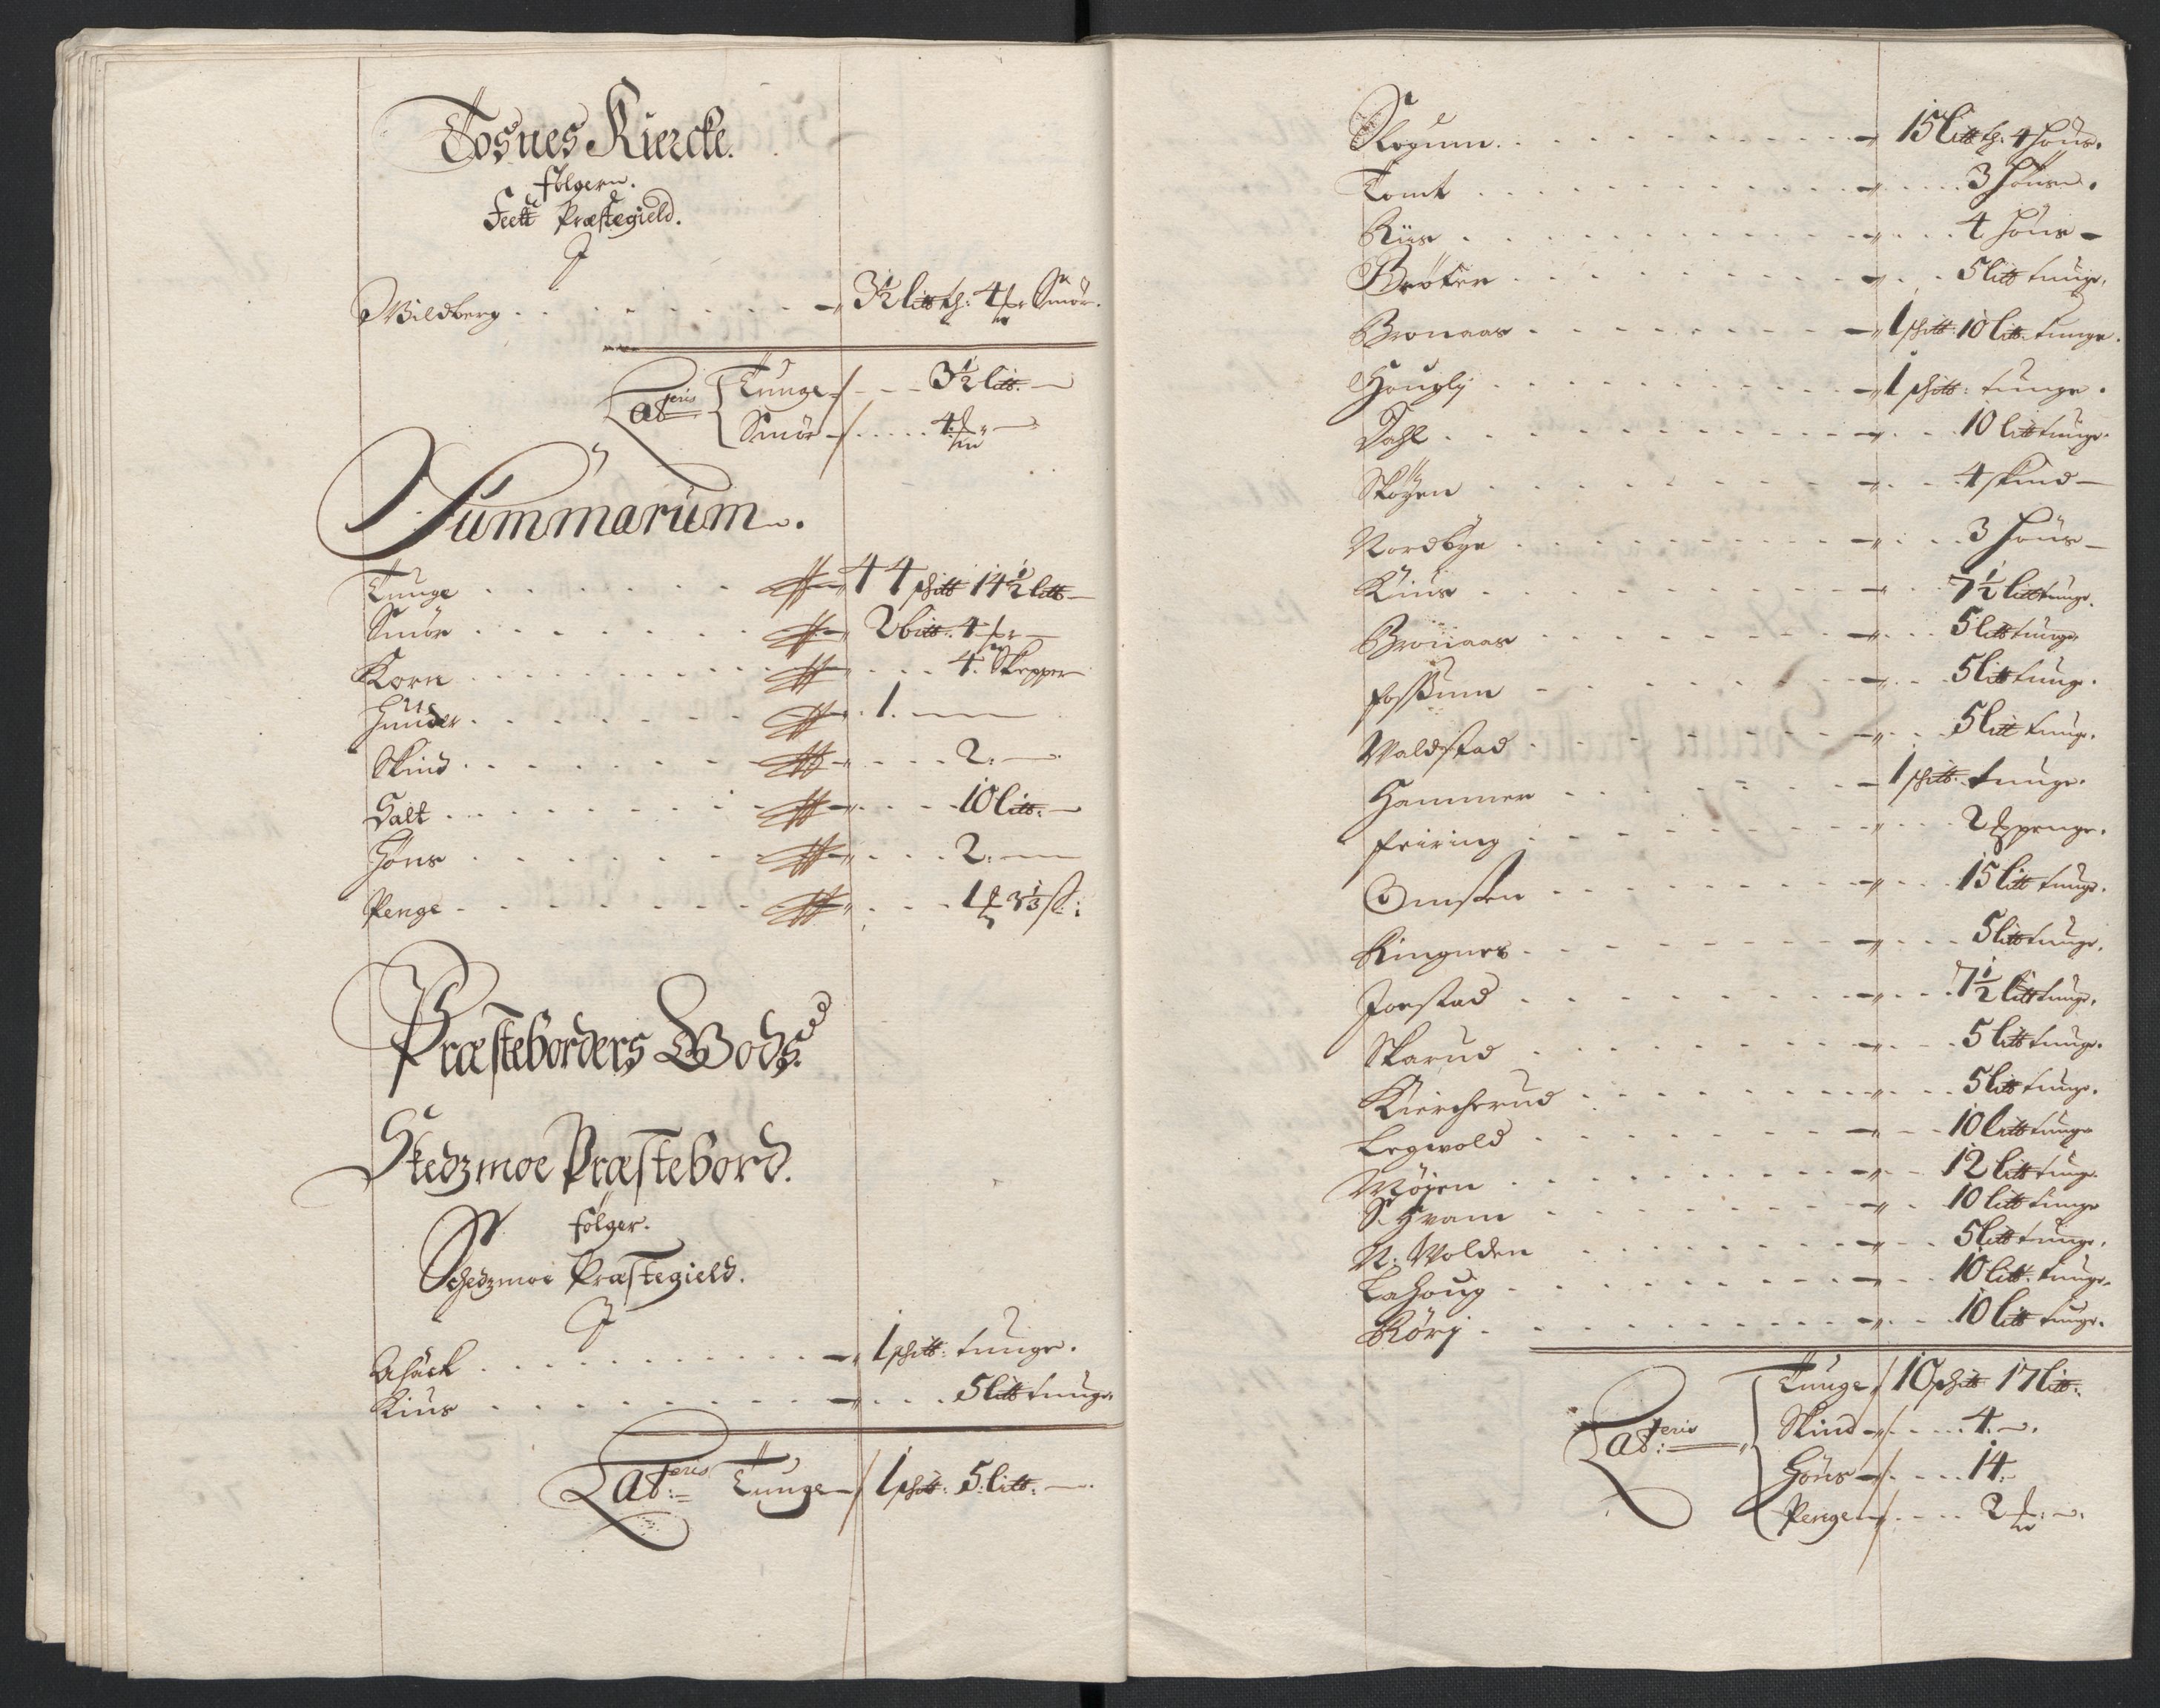 Tosnes Kiercke.
følgern.
Feett Præstegield.
J
Wildberg . . . . . . . . 3½ litt tg: 4 Smör.
Lateris Tunge . . 3½ litt.
Smör . . . . . 4
Summarum.
Tunge . . . . . . 44 schitt 14½ litt
Smör . . . . . . . 2 bitt. 4
Korn . . . . . . . . 4. Skepper
Huuder . . . . . . . 1.
Skind . . . . . . . . 2.
Salt . . . . . . . . 10 litt.
Höns . . . . . . . . 2.
Penge . . . . . . . 1 3⅓ ß:
Præsteborders Gods.
Skedzmoe Præstebord.
følger.
Schedzmoe Præstegield.
J
Asäck . . . . . . . . 1 schitt: tunge.
Kius . . . . . . . . 5 litt tunge.
Lateris Tunge 1 schitt: 5: litt:
Rogum . . . . . . . . 15 litt tg: 4 höns.
Tomt . . . . . . . . 3 höns.
Riis . . . . . . . . 4 höns
Bröter . . . . . . . . 5 litt tunge.
Bronaas . . . . . . . . 1 schitt: 10 litt. tunge.
Hougly . . . . . . . . 1 schitt: tunge.
Dahl . . . . . . . . 10 litt tunge.
Skøyen . . . . . . . . 4 skind
Nordbye . . . . . . . . 3 höns
Kius . . . . . . . . 7½ litt tunge.
Bronaas . . . . . . . . 5 litt tunge.
Fossum . . . . . . . . 5 litt tunge.
Waldstad . . . . . . . . 5 litt tunge.
Hammer . . . . . . . . 1 schitt. tunge.
Feiring . . . . . . . . 2 penge.
Omsten . . . . . . . . 15 litt tunge.
Ringnes . . . . . . . . 5 litt tunge.
Joestad . . . . . . . . 7½ litt tunge.
Skarud . . . . . . . . 5 litt tunge.
Kiercherud . . . . . . . . 5 litt tunge.
Legwold . . . . . . . . 10 litt tunge
Möien . . . . . . . . 12 litt tunge.
S. Hvam . . . . . . . . 10 litt tunge
N: Wolden . . . . . . . . 5 litt tunge.
Lahoug . . . . . . . . 10 litt. tunge.
Röri . . . . . . . . 10 litt tunge.
Lateris Tunge 10 schitt 17 litt:
Skind . . . . 4.
Höns . . . . 14.
Penge . . . . 2